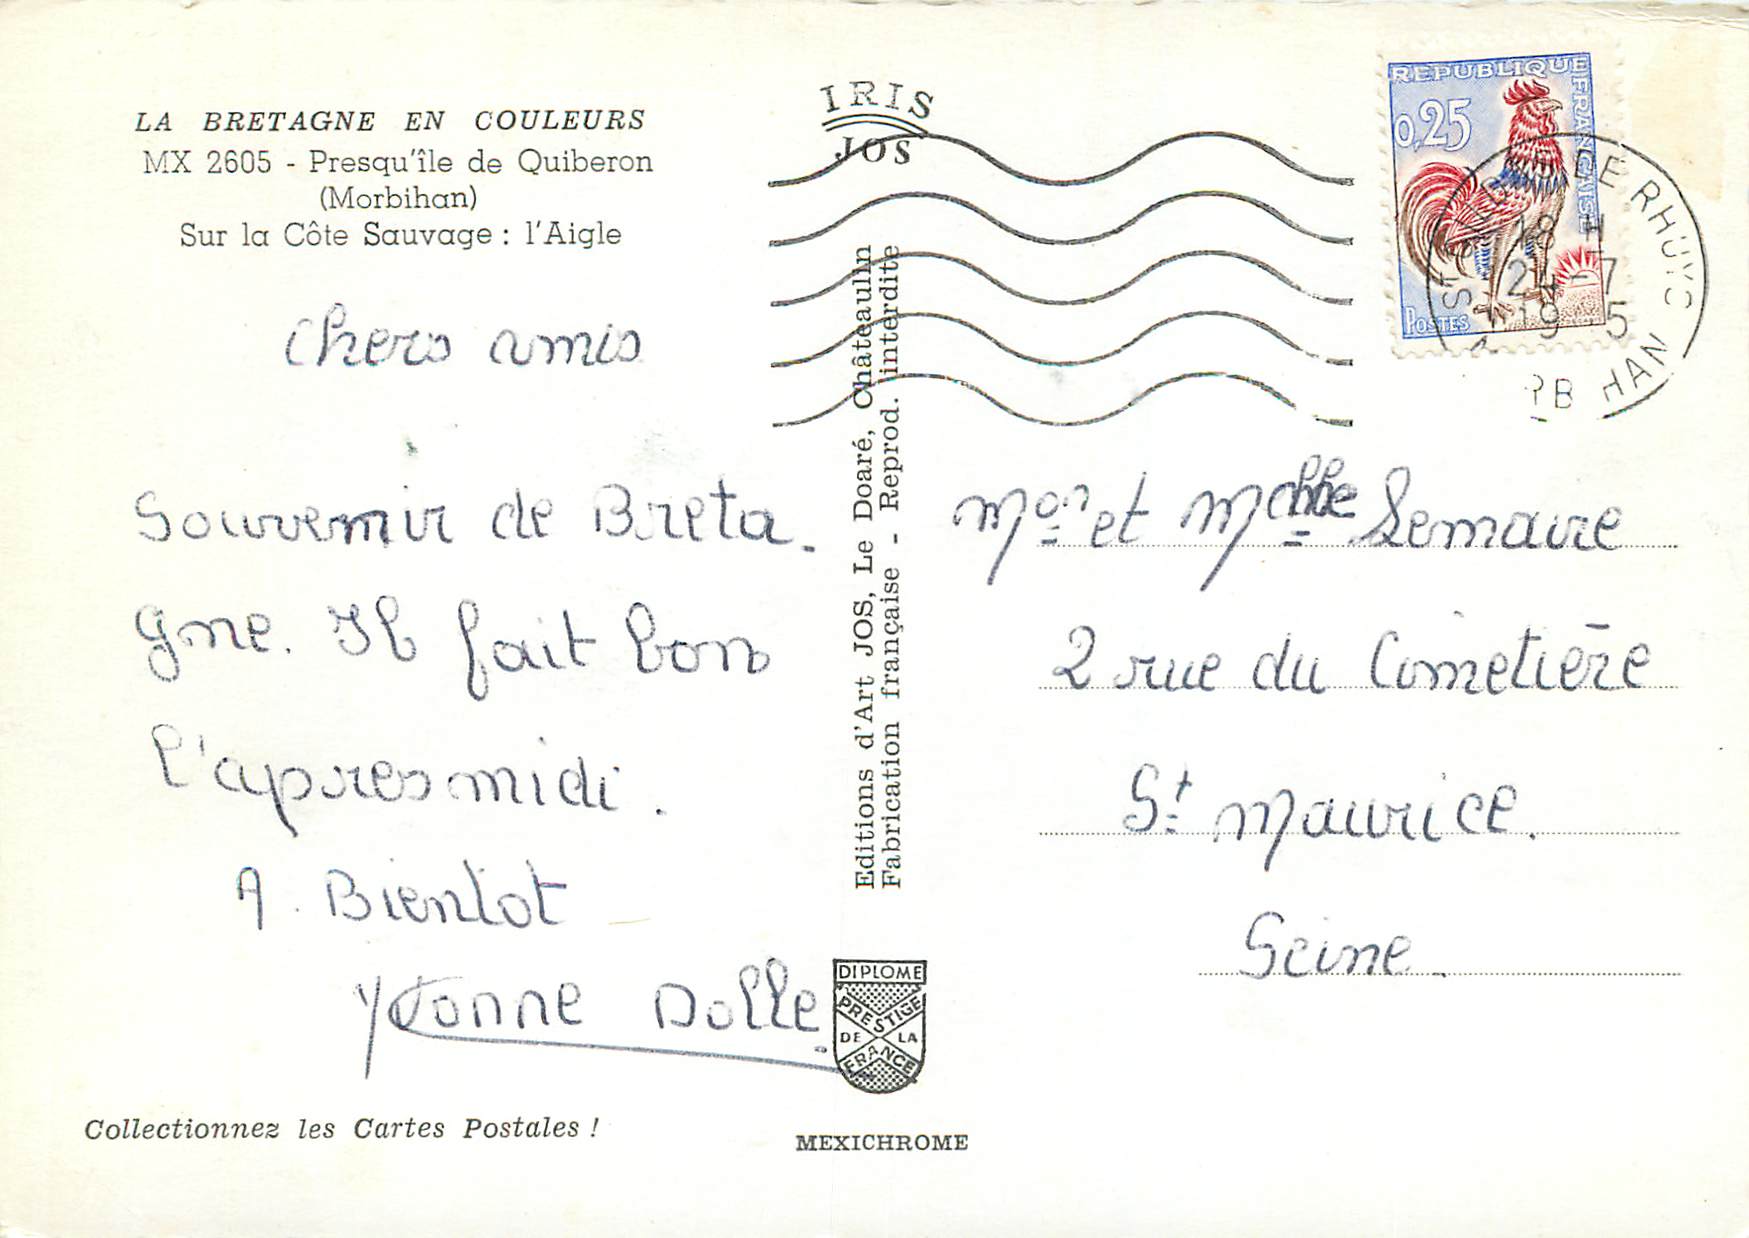 LA BRETAGNE EN COULEURS
MX 2605 - Presqu'île de Quiberon
(Morbihan)
Sur la Côte Sauvage : l'Aigle
Chers amis
Souvenir de Breta-
gne. Il fait bon
l'apres midi.
A Bientot
Yvonne Dolle
Collectionnez les Cartes Postales !
IRIS
JOS
Editions d'Art JOS, Le Doaré, Châteaulin
Fabrication française - Reprod. interdite
DIPLOME
PRESTIGE
DE LA
FRANCE
MEXICHROME
REPUBLIQUE
FRANCAISE
0,25
POSTES
DE RHUYS
18 H
-7
19 5
Mon et Melle Lemaire
2 rue du Cimetière
St Maurice.
Seine.